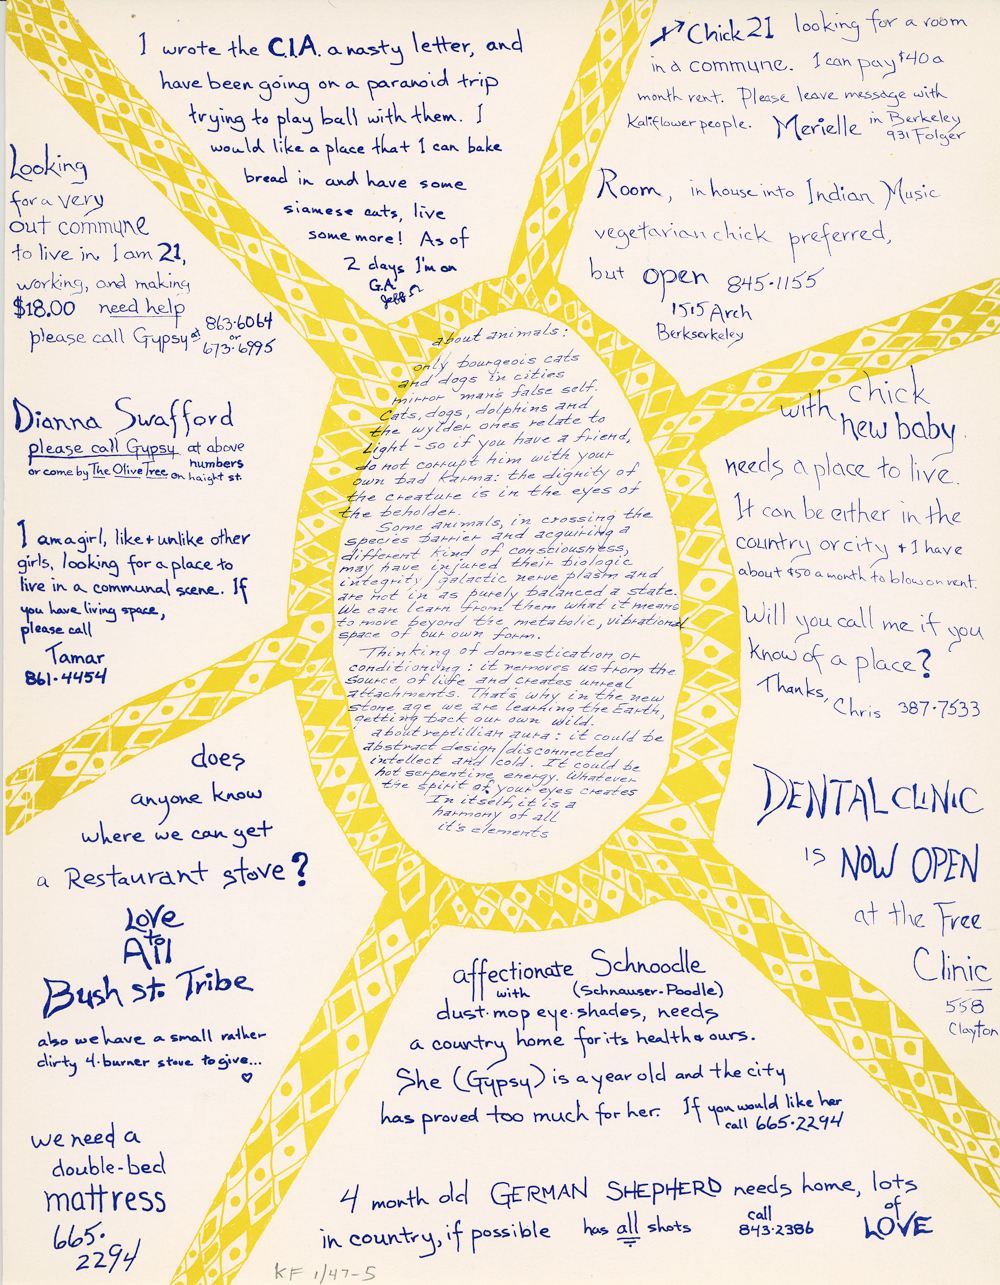 I wrote the C.I.A. a nasty letter, and
have been going on a paranoid trip
trying to play ball with them. I
would like a place that I can bake
bread in and have some
siamese cats, live
some more! As of
2 days I'm on
G.A.
Jeff
Chick 21 looking for a room
in a commune. I can pay $40 a
month rent. Please leave message with
Kaliflower people. Merielle in Berkeley
931 Folger
Room, in house into Indian Music
vegetarian chick preferred,
but open 845·1155
1515 Arch
Berkserkeley
Looking
for a very
out commune
to live in I am 21,
working, and making
$18.00 need help
please call Gypsy at 863·6064
or
673·6995
Dianna Swafford
please call Gypsy at above
numbers
or come by The Olive Tree on haight st.
I am a girl, like + unlike other
girls, looking for a place to
live in a communal scene. If
you have living space,
please call
Tamar
861·4454
about animals:
only bourgeois cats
and dogs in cities
mirror mans false self.
Cats, dogs, dolphins and
the wylder ones relate to
Light - so if you have a friend,
do not corrupt him with your
own bad Karma: the dignity of
the creature is in the eyes of
the beholder.
Some animals, in crossing the
species barrier and acquiring a
different kind of consciousness,
may have injured their biologic
integrity/galactic nerve plasm and
are not in as purely balanced a state.
We can learn from them what it means
to move beyond the metabolic, vibrational
space of our own form.
Thinking of domestication or
conditioning: it removes us from the
source of life and creates unreal
attachments. That's why in the new
stone age we are learning the Earth,
getting back our own wild.
about reptillian aura: it could be
abstract design/disconnected
intellect and/cold. It could be
hot serpentine energy. Whatever
the spirit of your eyes creates
In itself, it is a
harmony of all
it's elements
chick
with new baby
needs a place to live.
It can be either in the
country or city + I have
about $50 a month to blow on rent.
Will you call me if you
Know of a place?
Thanks,
Chris 387·7533
does
anyone know
where we can get
a Restaurant stove?
Love
to
All
Bush st. Tribe
also we have a small rather
dirty 4-burner stove to give...
DENTAL CLINIC
is NOW OPEN
at the Free
Clinic
558
Clayton
affectionate Schnoodle
with (Schnauser-Poodle)
dust-mop eye-shades, needs
a country home for its health & ours.
She (Gypsy) is a year old and the city
has proved too much for her. If you would like her
call 665·2294
we need a
double-bed
mattress
665·
2294
4 month old GERMAN SHEPHERD needs home, lots
of
LOVE
in country, if possible has all shots call
843·2386
KF 1/47-5